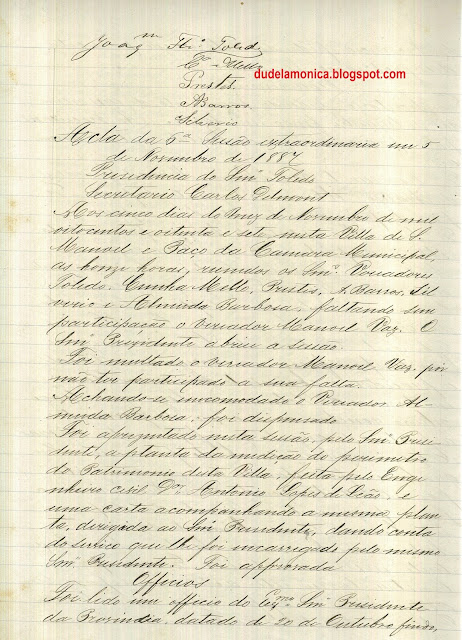 Joaqm Thº. Toled
Cª. Mello
dudelamonica.blogspot.com
Prestes.
ABarros.
Silverio
Acta da 6ª Sessão extraordinaria em 5
de Novembro de 1887
Presidencia do Snr Toledo
Secretario Carlos Delmont
Aos cinco dias do mez de Novembro de mil
oitocentos e oitenta e sete nesta Villa de S.
Manoel e Paço da Camara Municipal,
as honze horas, reunidos os Snrs. Vereadores
Toledo. Cunha Mello, Prestes, A. Barros, Sil
verio e Almeida Barbosa, faltando sem
participação o vereador Manoel Vaz. O
Snr Prezidente abrio a sessão.
Foi multado o vereador Manoel Vaz. por
não ter participado a sua falta.
Achando-se incomodado o Vereador Al-
meida Barbosa, foi dispensado
Foi aprezentado nesta sessão, pelo Snr Presi
dente, a planta da medição do perimetro
do Patrimonio desta Villa, feita pelo Enge
nheiro civil Dr. Antonio Lopes de Leão, e
uma carta acompanhando a mesma plan
ta, dirigida ao Snr Presidente, dando conta
do serviço que lhe foi encarregado pelo mesmo
Snr. Presidente. Foi approvada
Officios
Foi lido um officio do Exmo Snr Presidente
da Provincia, datado de 20 de Outubro findo,